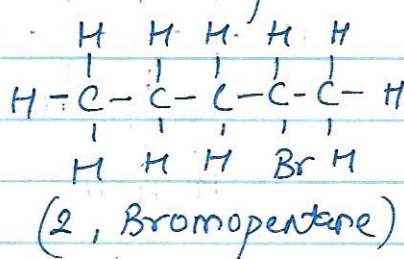 H H H H H
H - C - C - C - C - C - H
H H H Br H
(2, Bromopentane)